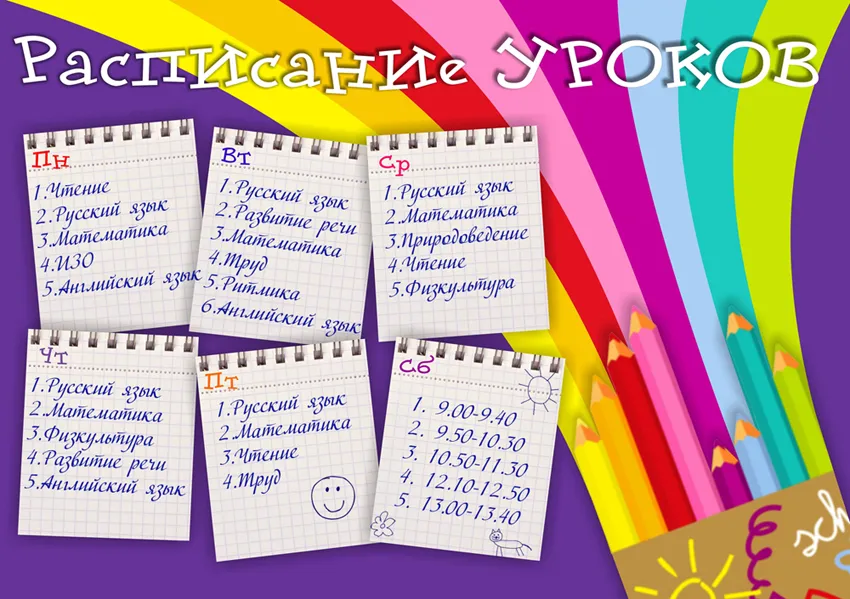 Расписание УРОКОВ
Пн
1.Чтение
2.Русский язык
3.Математика
4.ИЗО
5.Английский язык
Вт
1.Русский язык
2.Развитие речи
3.Математика
4.Труд
5.Ритмика
6.Английский язык
Ср
1.Русский язык
2.Математика
3.Природоведение
4.Чтение
5.Физкультура
Чт
1.Русский язык
2.Математика
3.Физкультура
4.Развитие речи
5.Английский язык
Пт
1.Русский язык
2.Математика
3.Чтение
4.Труд
Сб
1. 9.00-9.40
2. 9.50-10.30
3. 10.50-11.30
4. 12.10-12.50
5. 13.00-13.40
sch